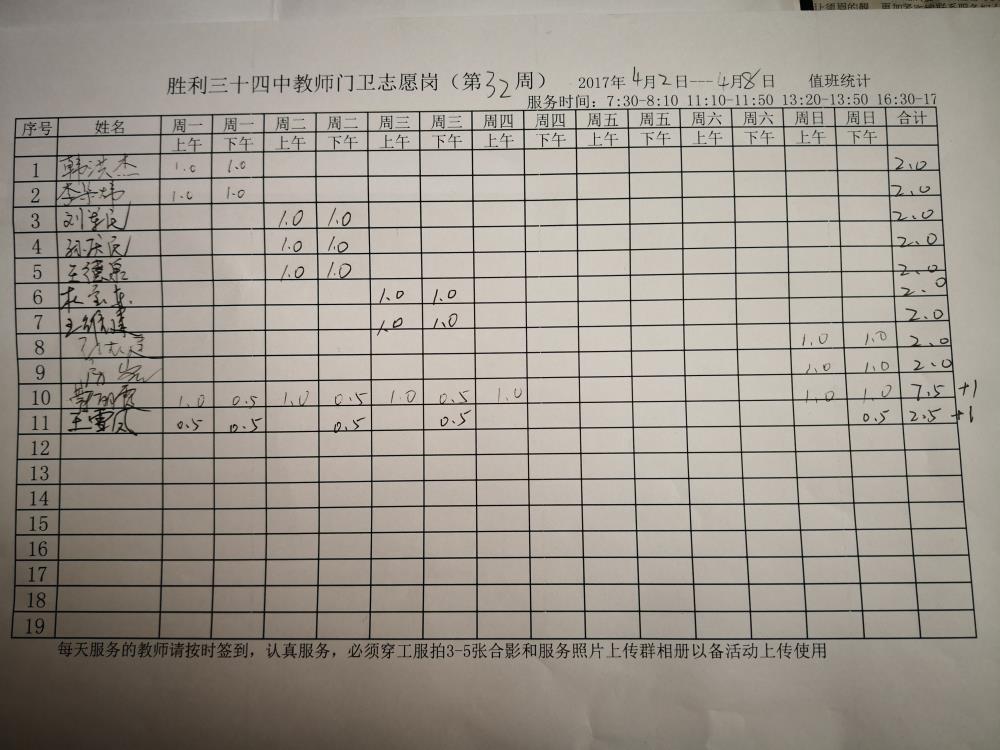 胜利三十四中教师门卫志愿岗（第32周） 2017年4月2日---4月8日 值班统计
服务时间：7:30-8:10 11:10-11:50 13:20-13:50 16:30-17
序号 姓名 周一 周一 周二 周二 周三 周三 周四 周四 周五 周五 周六 周六 周日 周日 合计
上午 下午 上午 下午 上午 下午 上午 下午 上午 下午 上午 下午 上午 下午
1 韩洪杰 1.0 1.0 2.0
2 1.0 1.0 2.0
3 1.0 1.0 2.0
4 孙庆民 1.0 1.0 2.0
5 王德泉 1.0 1.0 2.0
6 1.0 1.0 2.0
7 1.0 1.0 2.0
8 1.0 1.0 2.0
9 1.0 1.0 2.0
10 1.0 0.5 1.0 0.5 1.0 0.5 1.0 1.0 1.0 7.5 +1
11 王雪风 0.5 0.5 0.5 0.5 0.5 2.5 +1
12
13
14
15
16
17
18
19
每天服务的教师请按时签到，认真服务，必须穿工服拍3-5张合影和服务照片上传群相册以备活动上传使用